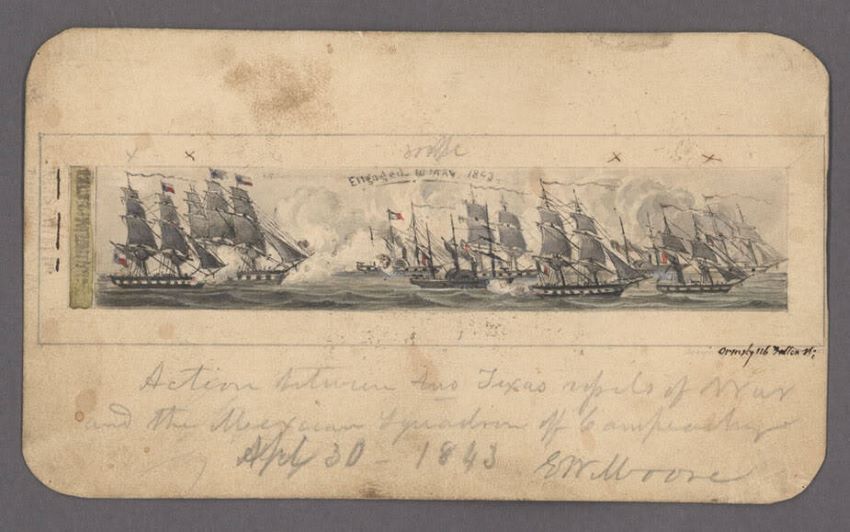 Engaged 16 MAY 1843
Ormsby 116 Fulton St;
Action between two Texas vessels of War
and the Mexican Squadron off Campeachy
Apl 30 - 1843 E W Moore